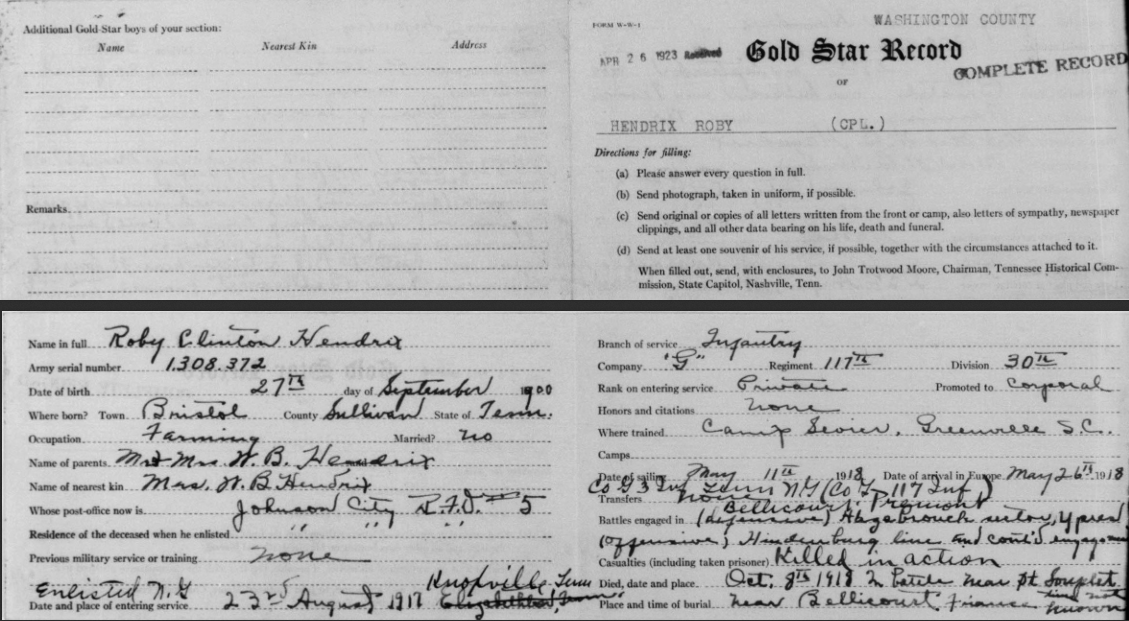 Additional Gold Star boys of your section:
Name Nearest Kin Address
Remarks
FORM W-W-1
WASHINGTON COUNTY
APR 26 1923 Received
Gold Star Record
COMPLETE RECORD
OF
HENDRIX ROBY (CPL.)
Directions for filling:
(a) Please answer every question in full.
(b) Send photograph, taken in uniform, if possible.
(c) Send original or copies of all letters written from the front or camp, also letters of sympathy, newspaper
clippings, and all other data bearing on his life, death and funeral.
(d) Send at least one souvenir of his service, if possible, together with the circumstances attached to it.
When filled out, send, with enclosures, to John Trotwood Moore, Chairman, Tennessee Historical Com-
mission, State Capitol, Nashville, Tenn.
Name in full Roby Clinton Hendrix
Army serial number 1.308.372
Date of birth 27th day of September 1900
Where born? Town Bristol County Sullivan State of Tenn.
Occupation Farming Married? no
Name of parents Mr & Mrs W. B. Hendrix
Name of nearest kin Mrs. W. B. Hendrix
Whose post-office now is Johnson City R.F.D. # 5
Residence of the deceased when he enlisted " " "
Previous military service or training none
Enlisted N.G Knoxville, Tenn
Date and place of entering service 23rd August 1917 Elizabethton, Tenn
Branch of service Infantry
Company "G" Regiment 117th Division 30th
Rank on entering service Private Promoted to Corporal
Honors and citations none
Where trained Camp Sevier, Greenville S.C.
Camps
Date of sailing May 11th 1918 Date of arrival in Europe May 26th 1918
Co G 3 Inf Tenn N G (Co G 117 Inf)
Transfers none
Bellicourt, Premont
Battles engaged in (defensive) sector, Ypres
(offensive) Hindenburg line and cont'd
Casualties (including taken prisoner) Killed in action
Died, date and place Oct. 8th 1918 In battle near St Souplet
Place and time of burial near Bellicourt, France time not
known